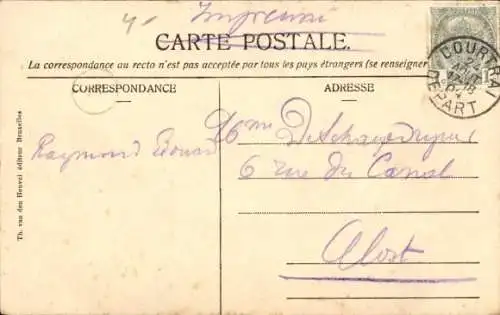 Imprimé
CARTE POSTALE.
La correspondance au recto n'est pas acceptée par tous les pays étrangers (se renseigner
CORRESPONDANCE
ADRESSE
COURTRAI
DEPART
Raymond Edouard
6 rue du Canal
Alost
Th. van den Heuvel éditeur Bruxelles